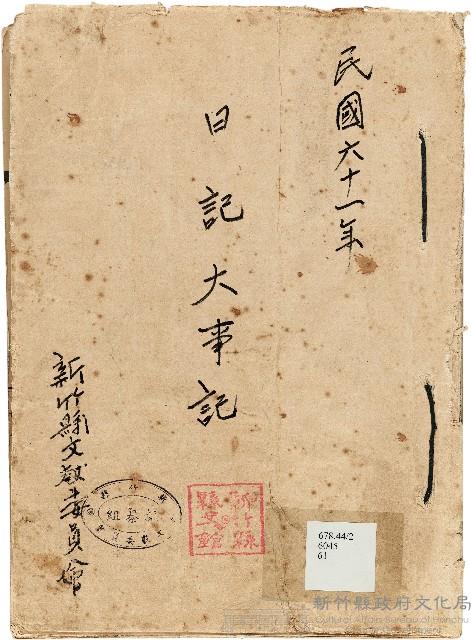 民國六十一年
日記大事記
新竹縣文獻委員會
新竹縣
縣史館
678.44/2
6045
61
新竹縣政府文化局
Cultural Affairs Bureau of Hsinchu